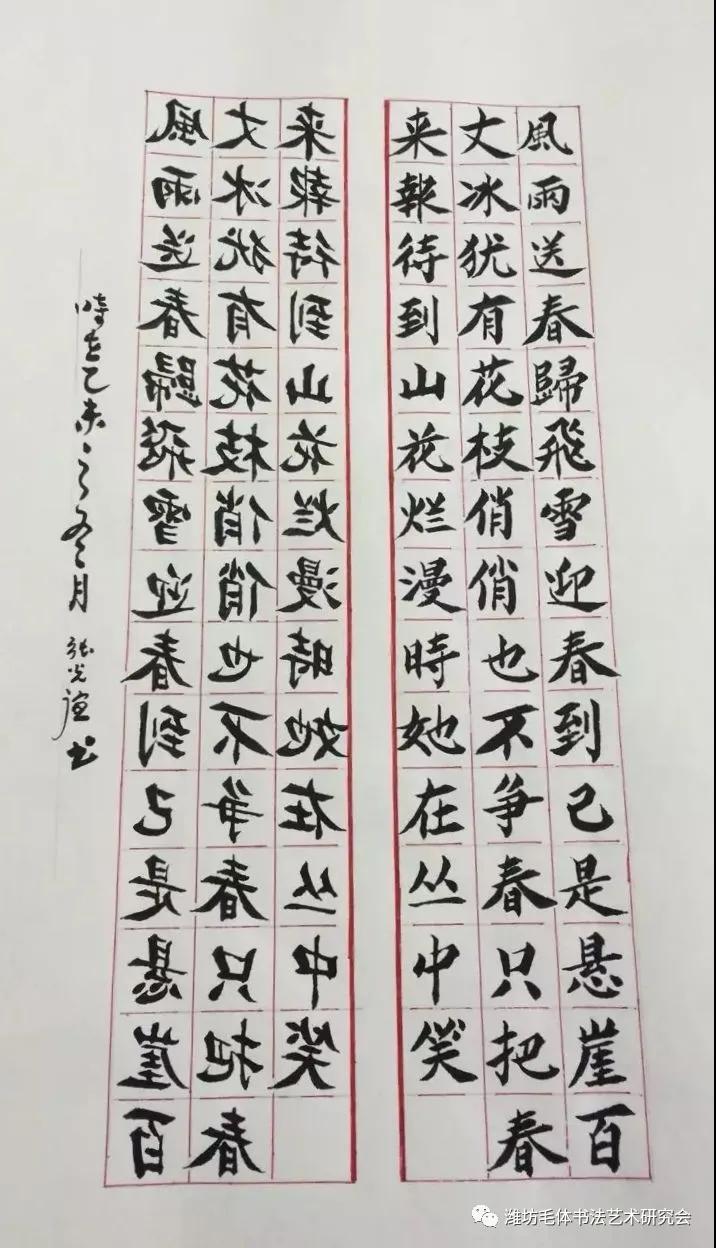 風雨送春歸飛雪迎春到已是悬崖百
丈冰犹有花枝俏俏也不争春只把春
来報待到山花烂漫時她在丛中笑
来報待到山花烂漫時她在丛中笑
丈冰犹有花枝俏俏也不争春只把春
風雨送春歸飛雪迎春到已是悬崖百
時在乙未之冬月 張光 书
潍坊毛体书法艺术研究会